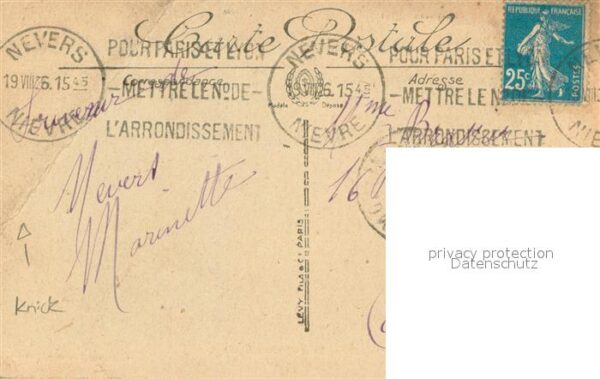 Carte Postale
RÉPUBLIQUE FRANÇAISE
25c
POSTES
NEVERS
19 VIII 26. 15 45
NIÈVRE
POUR PARIS ET LYON
-METTRE LE N° DE-
L'ARRONDISSEMENT
NEVERS
26. 15 45
NIÈVRE
POUR PARIS ET
-METTRE LE N° DE-
L'ARRONDISSEMENT
Correspondance
Modèle Déposé
Adresse
Souvenir de
Nevers
Marinette
Mme
16
LÉVY FILS & Cie PARIS
Knick
privacy protection
Datenschutz